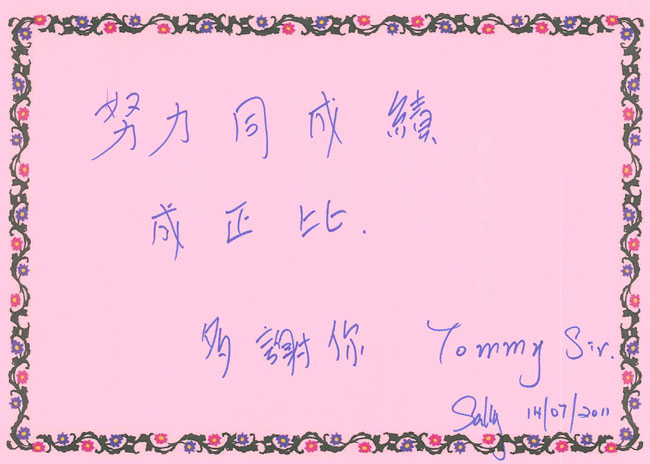 努力同成績
成正比.
多謝你 Tommy Sir.
Sally 14/07/2011